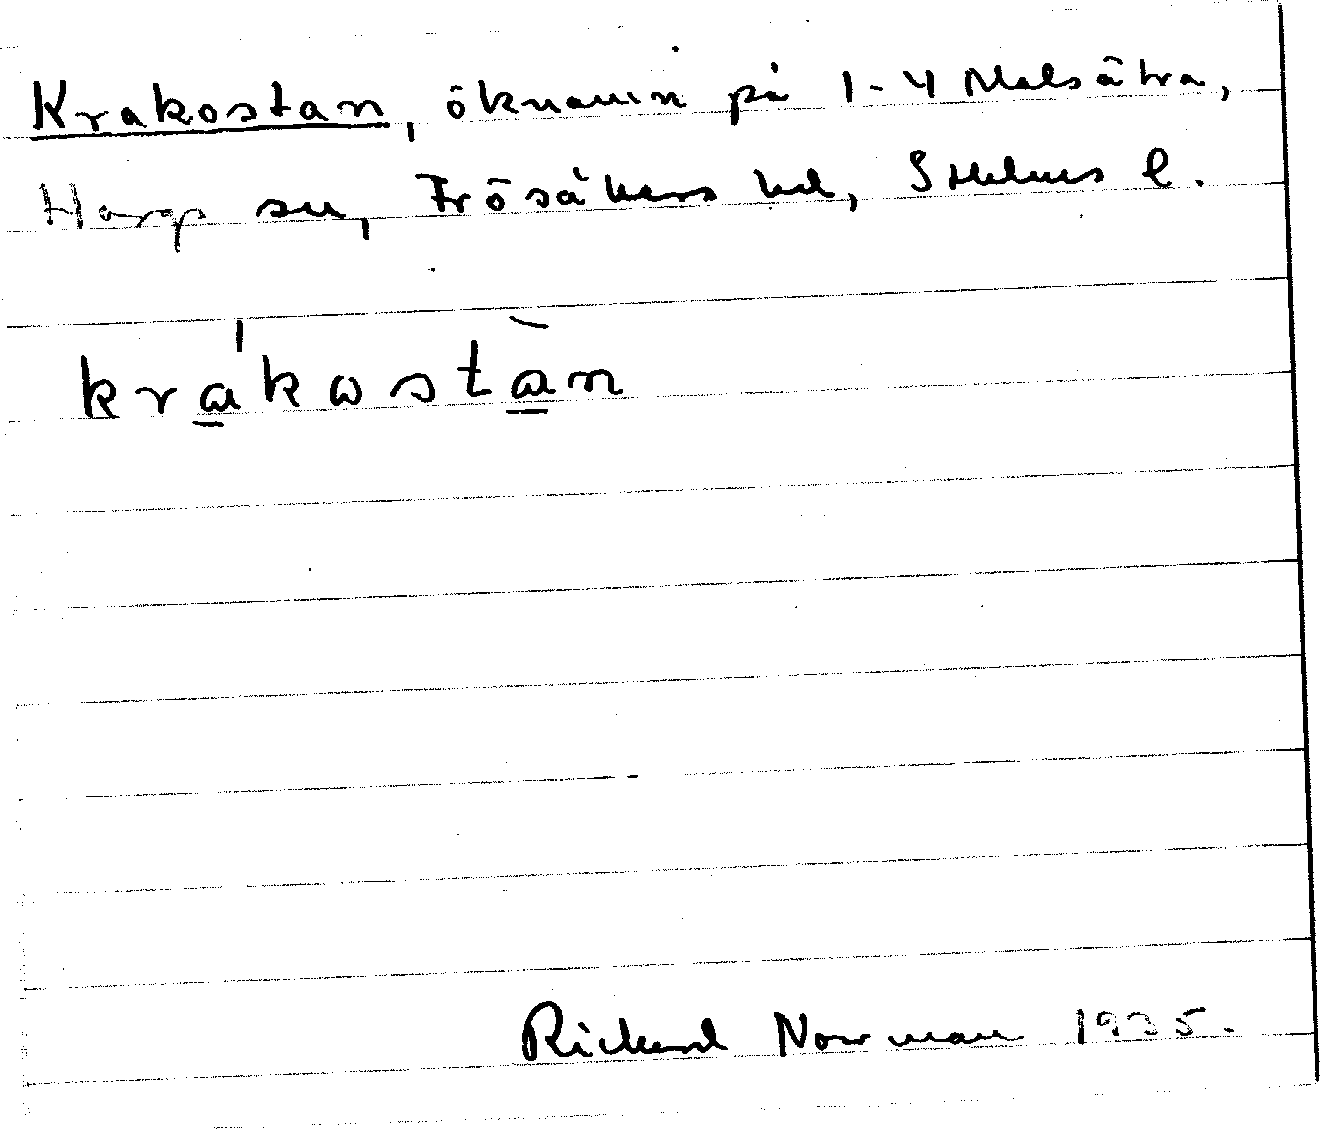 Krakostan, öknamn på 1-4 Malsätra,
Hargs sn, Frösåkers hd, Sthlms l.
krákostàn
Rickard Norrman 1935.